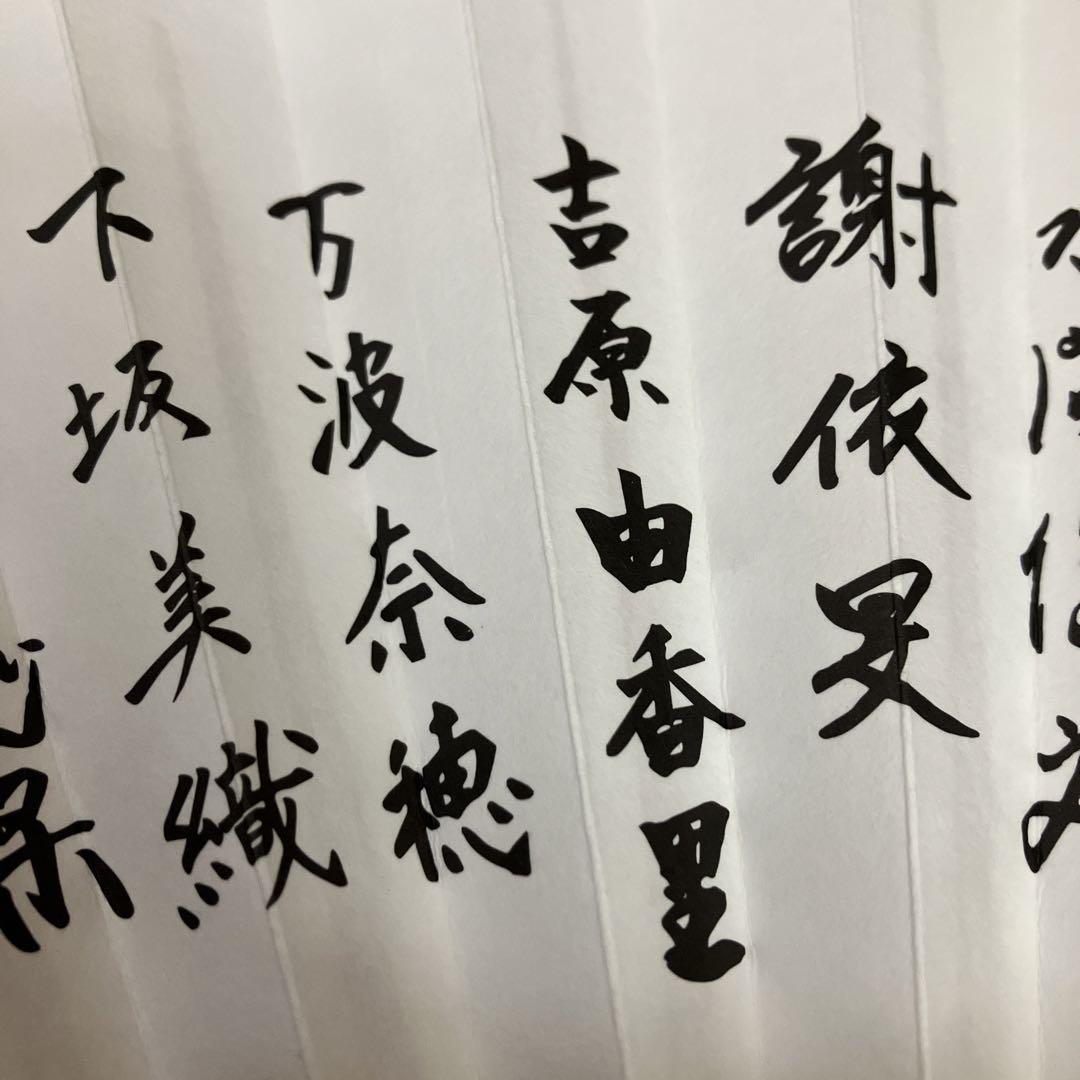 謝依旻
吉原由香里
万波奈穂
下坂美織